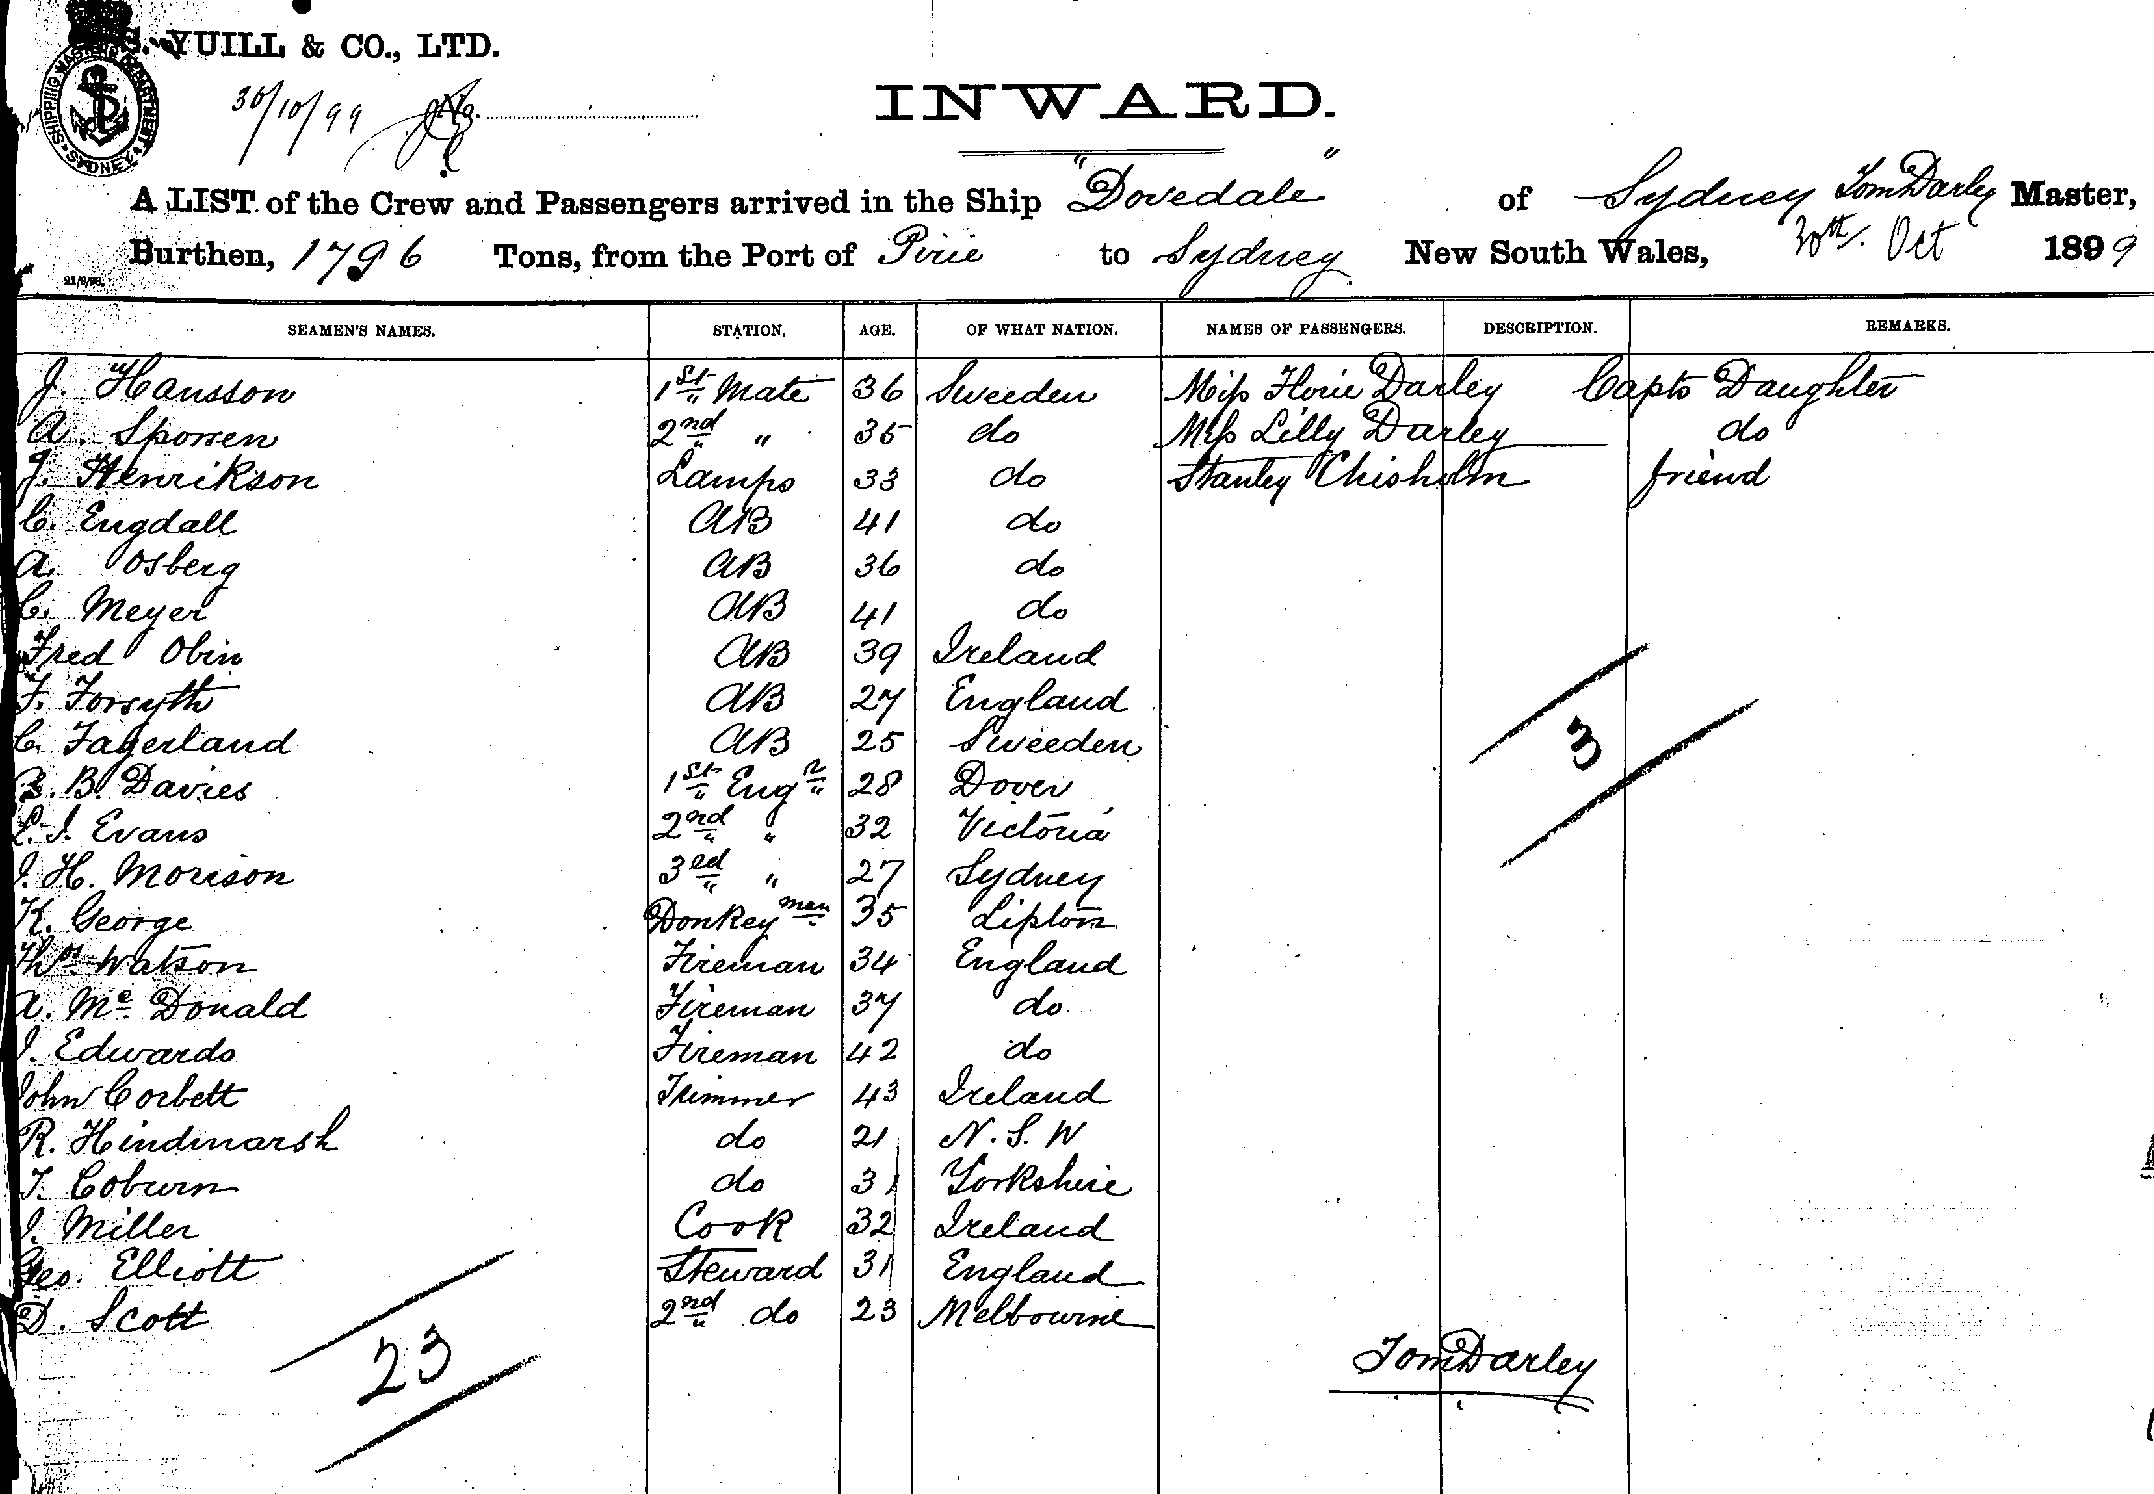 S. YUILL & CO., LTD.
SHIPPING MASTERS DEPARTMENT SYDNEY
30/10/99 No.
INWARD.
A LIST of the Crew and Passengers arrived in the Ship "Dovedale" of Sydney Tom Darley Master,
Burthen, 1796 Tons, from the Port of Pirie to Sydney New South Wales, 30th. Oct 1899
SEAMEN'S NAMES. STATION. AGE. OF WHAT NATION. NAMES OF PASSENGERS. DESCRIPTION. REMARKS.
J. Hansson 1st Mate 36 Sweeden Miss Florie Darley Capts Daughter
A. Sporren 2nd " 35 do Miss Lilly Darley do
J. Henrikson Lamps 33 do Stanley Chisholm friend
C. Engdall AB 41 do
A. Osberg AB 36 do
C. Meyer AB 41 do
Fred Obin AB 39 Ireland
F. Forsyth AB 27 England
C. Fagerland AB 25 Sweeden
B. Davies 1st Engr 28 Dover
3
Evans 2nd " 32 Victoria
J. H. Morison 3ed " 27 Sydney
K. George Donkey man 35 Lipton
Thos Watson Fireman 34 England
A. Mc Donald Fireman 37 do
J. Edwards Fireman 42 do
John Corbett Trimmer 43 Ireland
R. Hindmarsh do 21 N. S. W
T. Coburn do 31 Yorkshire
J. Miller Cook 32 Ireland
Geo. Elliott Steward 31 England
D. Scott 2nd do 23 Melbourne
23
Tom Darley